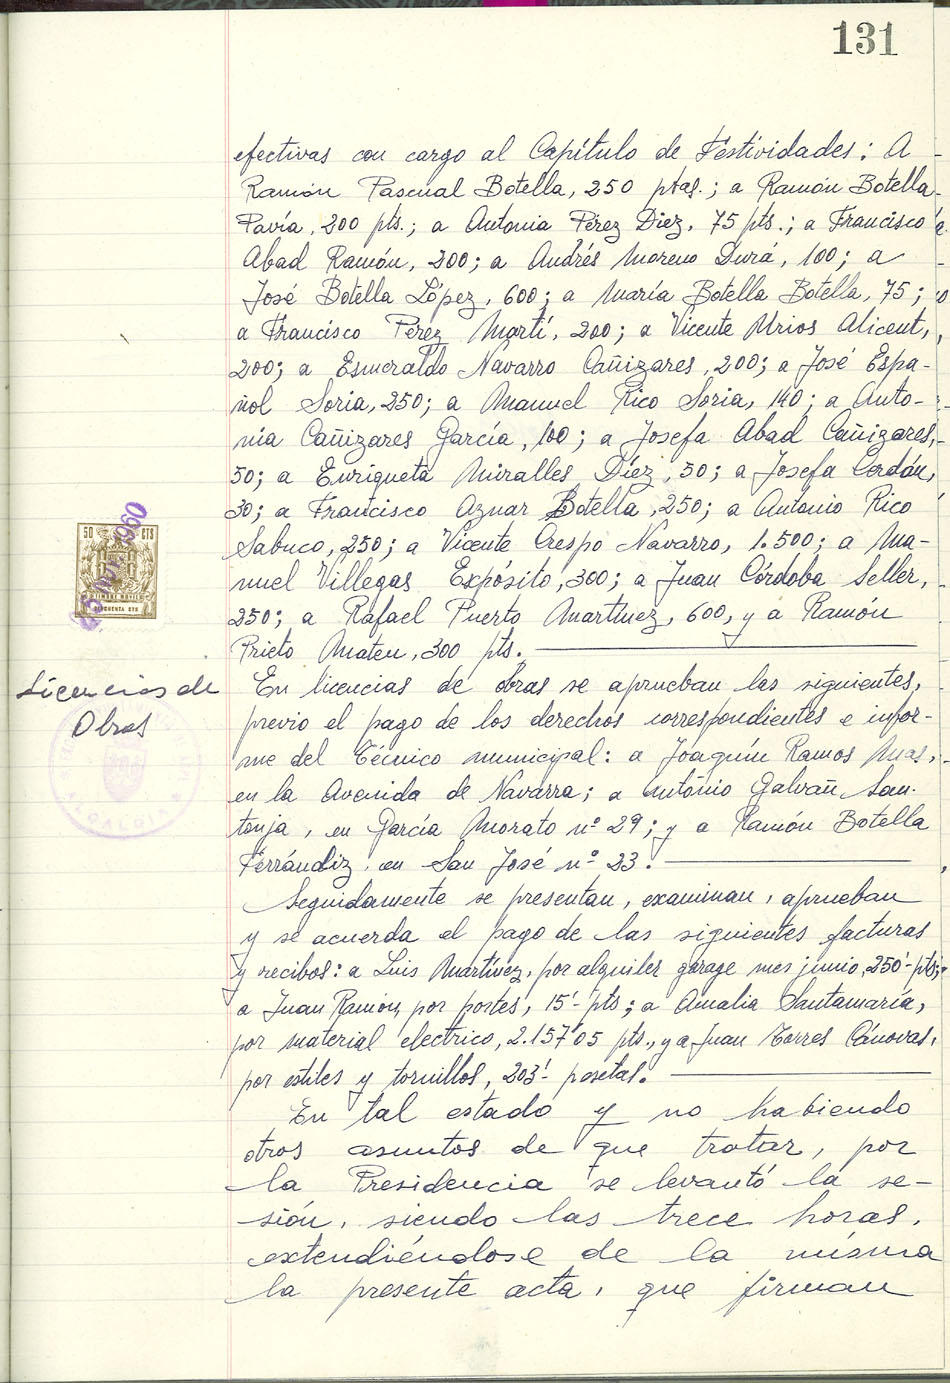 131
efectivas con cargo al Capítulo de Festividades: A
Ramón Pascual Botella, 250 ptas.; a Ramón Botella
Pavía, 200 pts.; a Antonia Pérez Díez, 75 pts.; a Francisco
Abad Ramón, 200; a Andrés Moreno Durá, 100; a
José Botella López, 600; a María Botella Botella, 75;
a Francisco Pérez Martí, 200; a Vicente Urios Alicent,
200; a Esmeraldo Navarro Cañizares, 200; a José Espa-
ñol Soria, 250; a Manuel Rico Soria, 140; a Anto-
nia Cañizares García, 100; a Josefa Abad Cañizares,
50; a Enriqueta Miralles Díez, 50; a Josefa Cerdán,
30; a Francisco Aznar Botella, 250; a Antonio Rico
Sabuco, 250; a Vicente Crespo Navarro, 1.500; a Ma-
nuel Villegas Expósito, 300; a Juan Córdoba Seller,
250; a Rafael Puerto Martínez, 600, y a Ramón
Prieto Mateu, 300 pts.
50 CTS
1960
TIMBRE MOVIL
CINCUENTA CTS
Licencias de
Obras
ALCALDIA
En licencias de obras se aprueban las siguientes,
previo el pago de los derechos correspondientes e infor-
me del Técnico municipal: a Joaquín Ramos Mas,
en la Avenida de Navarra; a Antonio Galvañ San-
tonja, en García Morato nº 29; y a Ramón Botella
Ferrándiz, en San José nº 23.
Seguidamente se presentan, examinan, aprueban
y se acuerda el pago de las siguientes facturas
y recibos: a Luis Martínez, por alquiler garage mes junio, 250'- pts;
a Juan Ramón, por portes, 15'- pts; a Amalia Santamaría,
por material electrico, 2.157'05 pts., y a Juan Torres Cánovas,
por estiles y tornillos, 203'- pesetas.
En tal estado y no habiendo
otros asuntos de que tratar, por
la Presidencia se levantó la se-
sión, siendo las trece horas,
extendiéndose de la misma
la presente acta, que firman